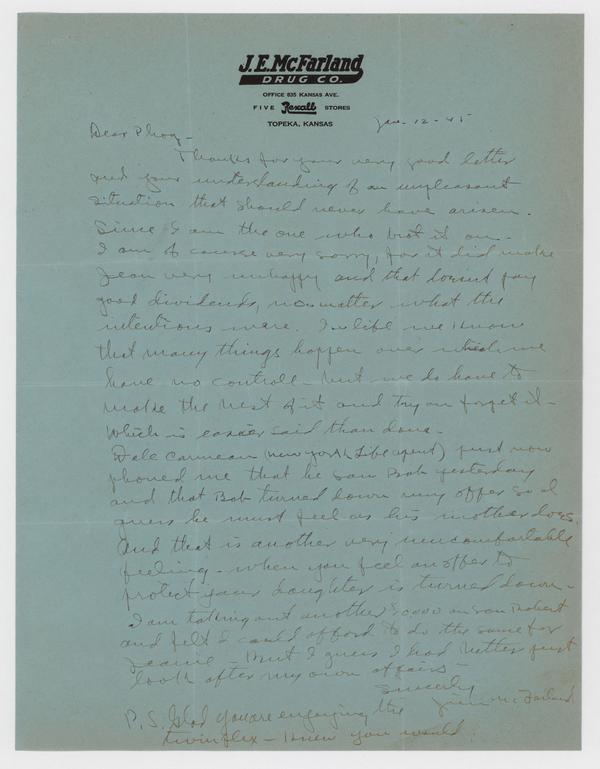 J.E. McFarland
DRUG CO.
OFFICE 835 KANSAS AVE.
FIVE Rexall STORES
TOPEKA, KANSAS
Jan. 12 - 45
Dear Phog -
Thanks for your very good letter
and your understanding of an unpleasant
situation that should never have arisen.
Since I am the one who brot it on -
I am of course very sorry, for it did make
Jean very unhappy and that doesnt pay
good dividends, no matter what the
intentions were. In life we know
that many things happen over which we
have no controll - but we do have to
make the best of it and try an forget it -
Which is easier said than done -
Dale Carmean (New York Life agent) just now
phoned me that he saw Bob yesterday
and that Bob turned down my offer so I
guess he must feel as his mother does.
And that is another very uncomfortable
feeling - when you feel an offer to
protect your daughter is turned down -
I am taking out another on son Robert
and felt I could afford to do the same for
Jeanne - But I guess I had better just
look after my own affairs -
Sincerely
Jim McFarland
P.S. Glad you are enjoying the
twinplex - knew you would.